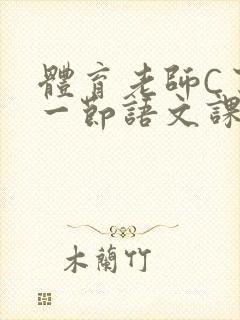 體育老師C
一節語文課
木蘭竹